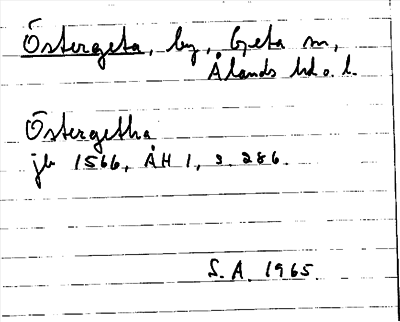 Östergeta, by, Geta sn,
Ålands hd o. l.
Östergetha
jb 1566, ÅH 1, s. 286.
S.A. 1965.